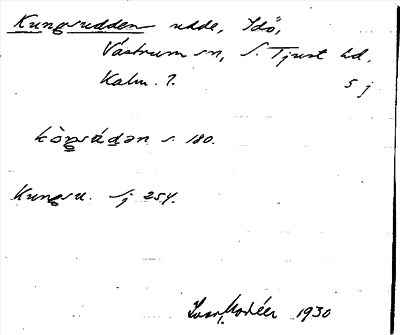 Kungsudden udde, Idö,
Västrum sn, S. Tjust hd,
Kalm. l. 5 j
kòŋsúdən s. 180.
Kungsu. Sj 254.
Ivar Modéer 1930